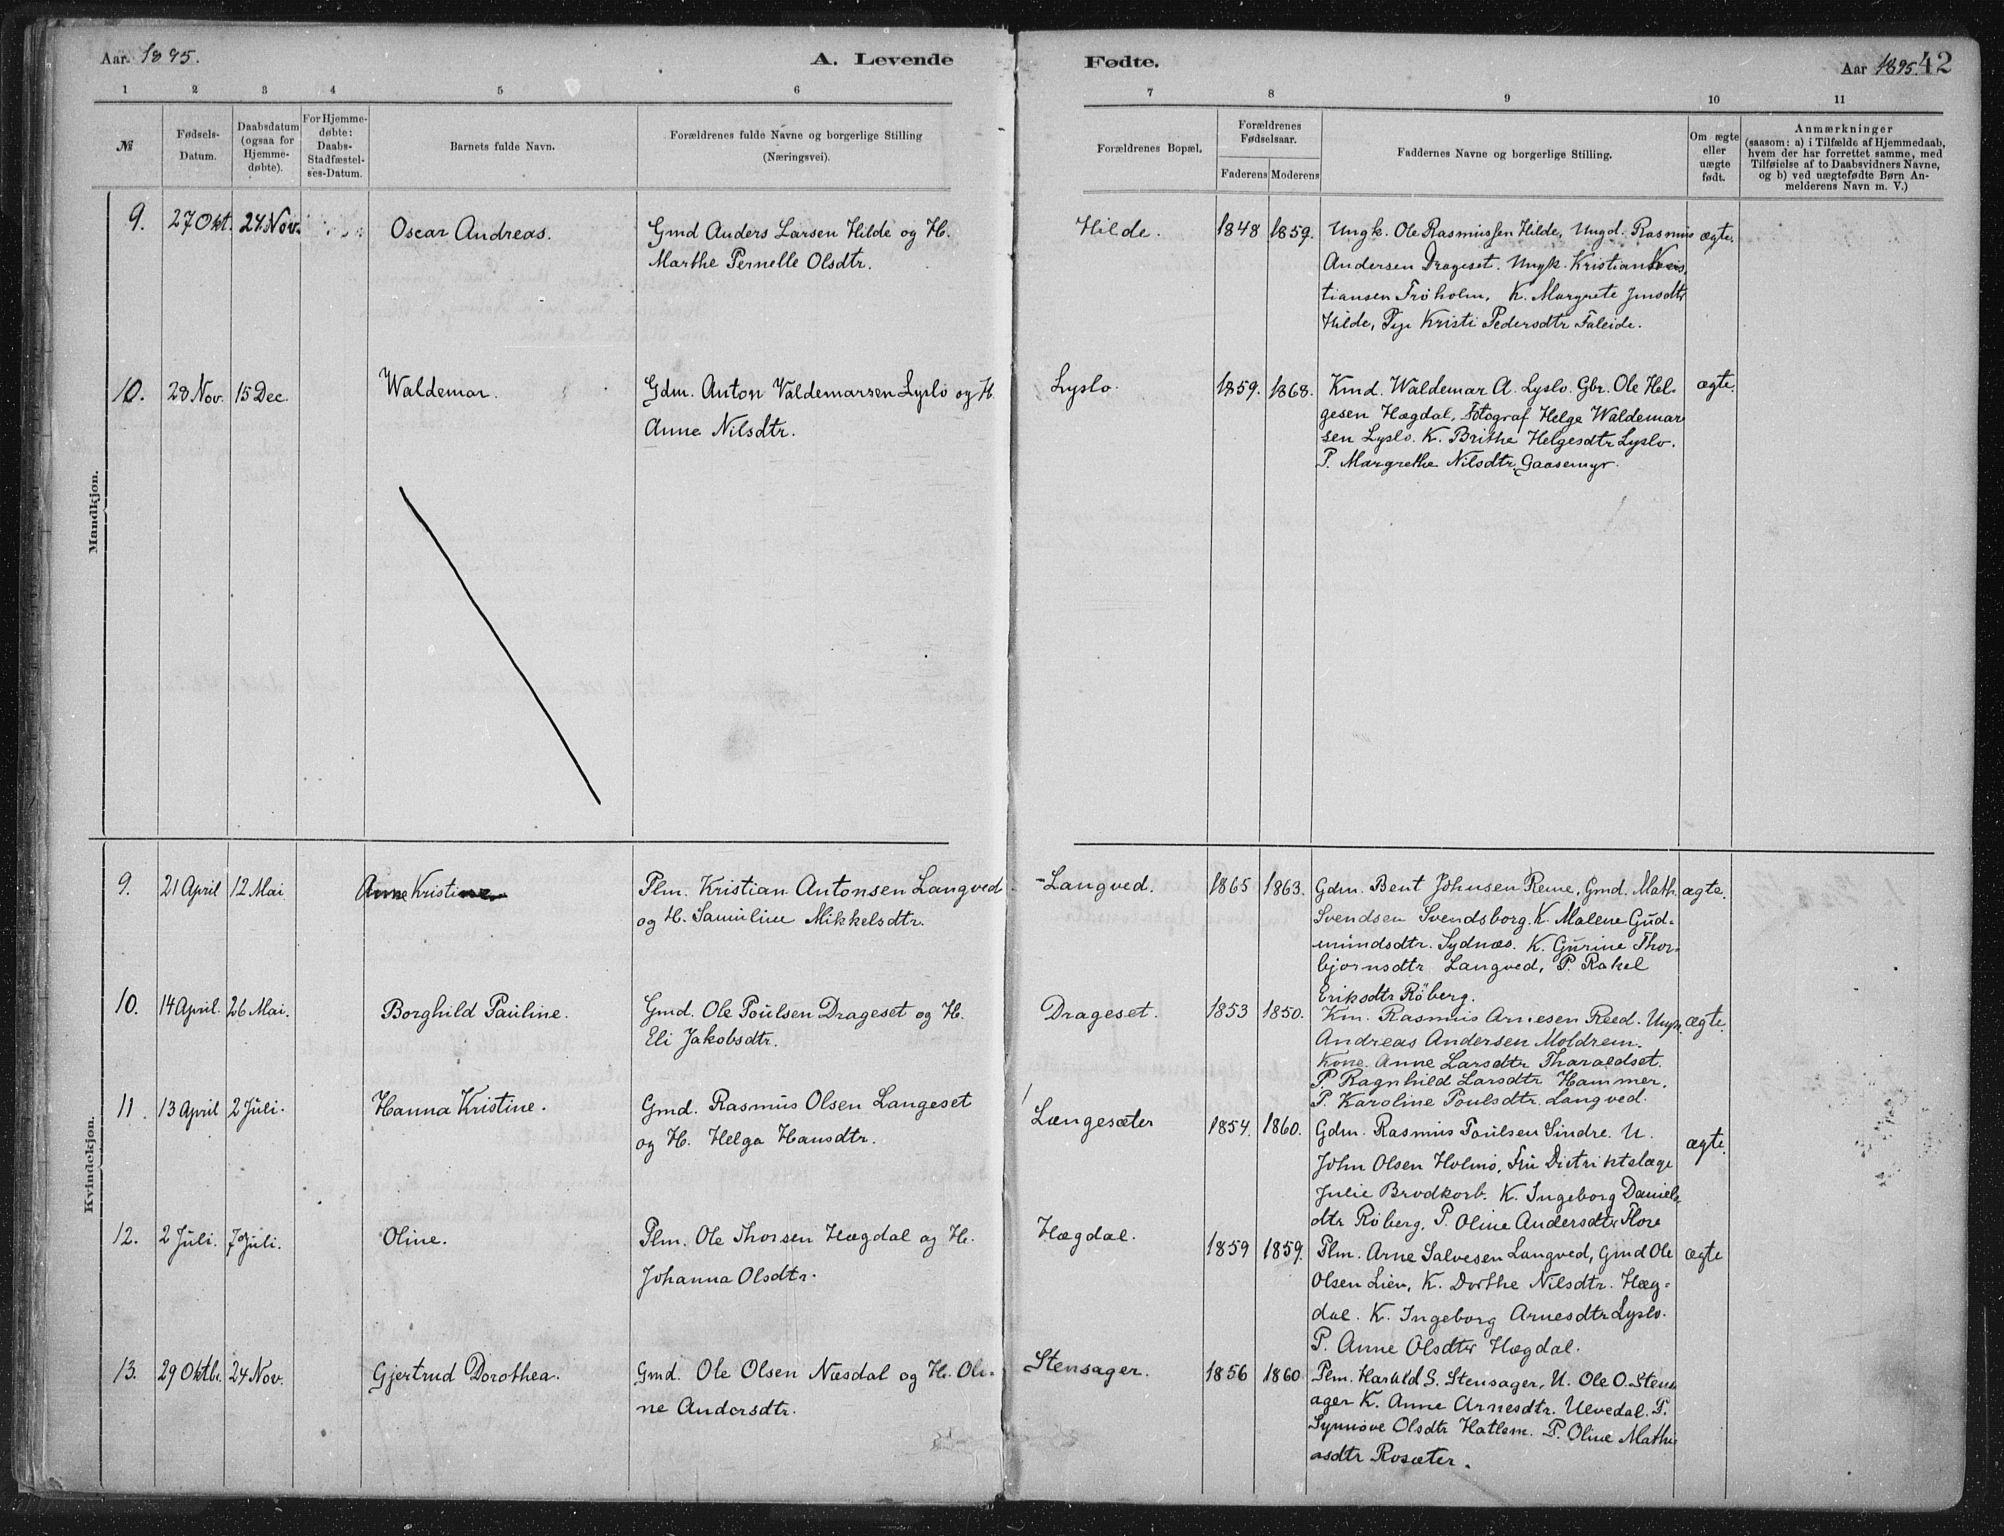 Aar. 1895.
A. Levende
Fødte.
Aar 1895.
42
1 2 3 4 5 6
7 8 9 10 11
№
Fødsels-
Datum.
Daabsdatum
(ogsaa for
Hjemme-
døbte).
For Hjemme-
døbte:
Daabs-
Stadfæstel-
ses-Datum.
Barnets fulde Navn.
Forældrenes fulde Navne og borgerlige Stilling
(Næringsvei).
Forældrenes Bopæl.
Forældrenes
Fødselsaar.
Faderens Moderens
Faddernes Navne og borgerlige Stilling.
Om ægte
eller
uægte
født.
Anmærkninger
(saasom: a) i Tilfælde af Hjemmedaab,
hvem der har forrettet samme, med
Tilføielse af to Daabsvidners Navne,
og b) ved uægtefødte Børn An-
melderens Navn m. V.)
Mandkjøn.
9. 27 Okt. 24 Nov. Oscar Andreas. Gmd Anders Larsen Hilde og H.
Marthe Pernelle Olsdtr.
Hilde. 1848 1859. Ungk. Ole Rasmussen Hilde, Ungd. Rasmus ægte.
Andersen Drageset. Ungk. Kristian Kris
tiansen Trøholm, K. Margrete Jensdtr
Hilde, Pige Kristi Pedersdtr Faleide.
10. 28 Nov. 15 Dec. Waldemar. Gdm. Anton Valdemarsen Lyslo og H.
Anne Nilsdtr.
Lyslo. 1859. 1868. Kmd. Waldemar A. Lyslo. Gbr. Ole Hel- ægte.
gesen Hægdal, Fotograf Helge Waldemar
sen Lyslo. K. Brithe Helgesdtr Lyslo.
P. Margrethe Nilsdtr Gaasemyr.
Kvindekjøn.
9. 21 April 12 Mai Anne Kristine Plm. Kristian Antonsen Langved
og H. Samuline Mikkelsdtr.
Langved. 1865 1863. Gdm. Bent Johnsen Reme, Gmd. Math. ægte.
Svendsen Svendsborg. K. Malene Gud-
mundsdtr. Sydnæs. K. Gurine Thor-
bjornsdtr Langved, P. Rakel
Eriksdtr Røberg.
10. 14 April. 26 Mai. Borghild Pauline. Gmd. Ole Poulsen Drageset og H.
Eli Jakobsdtr.
Drageset. 1853 1850. Km. Rasmus Arnesen Reed. Ungk. ægte.
Andreas Andersen Moldrem.
Kone. Anne Larsdtr Tharaldset.
P. Ragnhild Larsdtr Hammer.
P. Karoline Poulsdtr. Langved.
11. 13 April 2 Juli. Hanna Kristine. Gmd. Rasmus Olsen Langeset
og H. Helga Hansdtr.
Længesæter 1854. 1860. Gdm. Rasmus Poulsen Sindre. U. ægte.
John Olsen Holmø, Fru Distriktslæge
Julie Brodkorb. K. Ingeborg Daniels
dtr Røberg, P. Oline Andersdtr Flore
12. 2 Juli. 7 Juli. Oline. Plm. Ole Thorsen Hægdal og H.
Johanna Olsdtr.
Hægdal. 1859 1859. Plm. Arne Salvesen Langved, Gmd Ole ægte
Olsen Lien, K. Dorthe Nilsdtr. Hæg-
dal. K. Ingeborg Arnesdtr Lyslo.
P. Anne Olsdtr Hægdal.
13. 29 Oktbr. 24 Nov. Gjertrud Dorothea. Gmd. Ole Olsen Næsdal og H. Oli-
ne Andersdtr.
Stensager. 1856 1860 Plm. Harald S. Stensager, U. Ole O. Stens
ager K. Anne Arnesdtr. Uevedal. P.
Synnøve Olsdtr Hatlem. P. Oline Mathi
asdtr Rosæter.